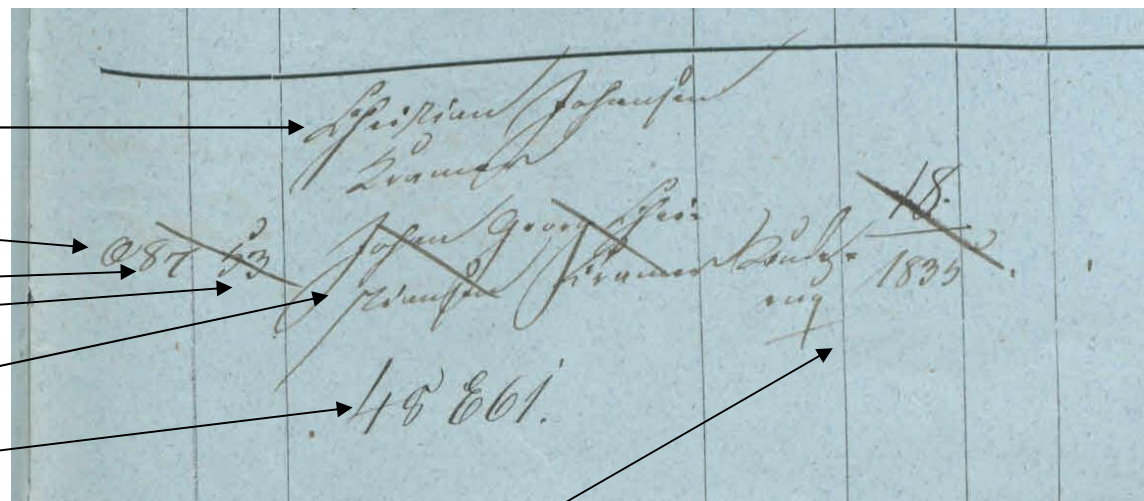 Christian Johansen
Kramer
O 87 53 Johan Georg Chri- 18.
stiansen Kramer 1835
48 E61.